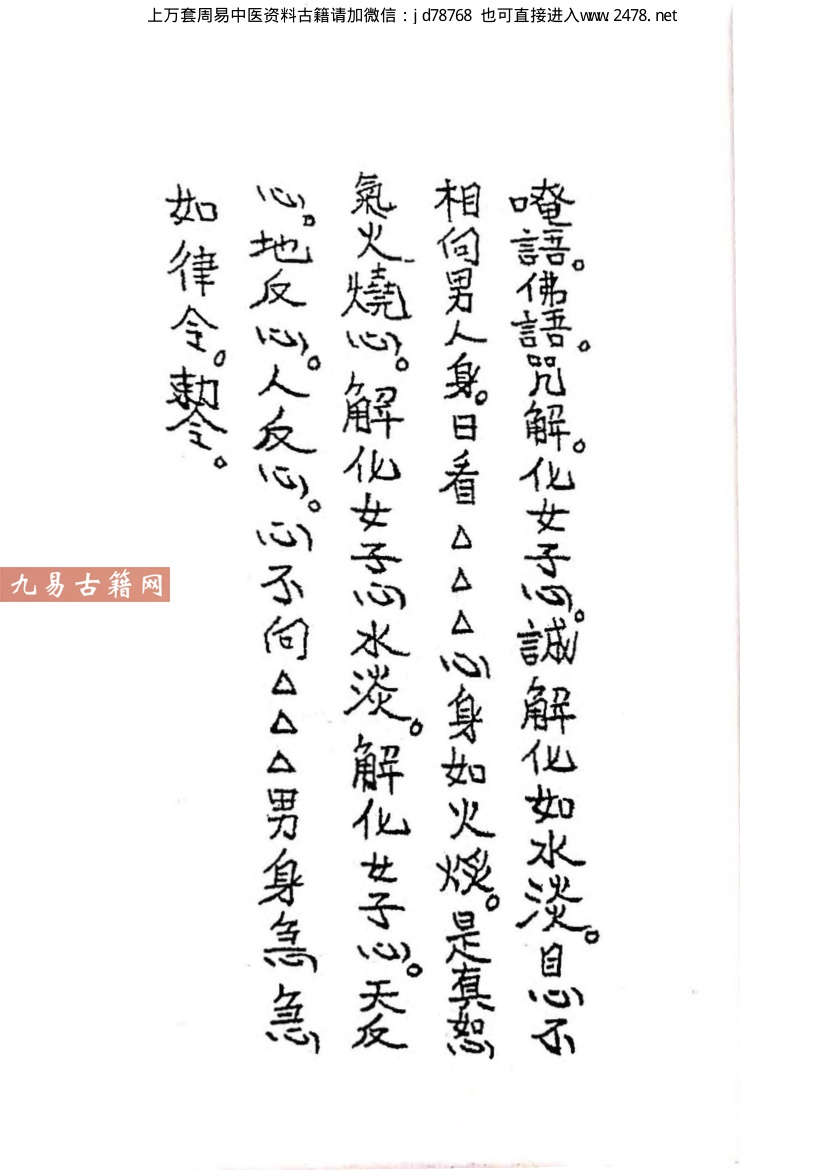 上万套周易中医资料古籍请加微信：jd78768 也可直接进入www.2478.net
唵語。佛語。咒解。化女子心。誠解化如水淡。自心不
相向男人身。日看△△△心身如火煅。是真怨
氣火燒心。解化女子心水淡。解化女子心。天反
心。地反心。人反心。心不向△△△男身急急
如律令。勅令。
九易古籍网